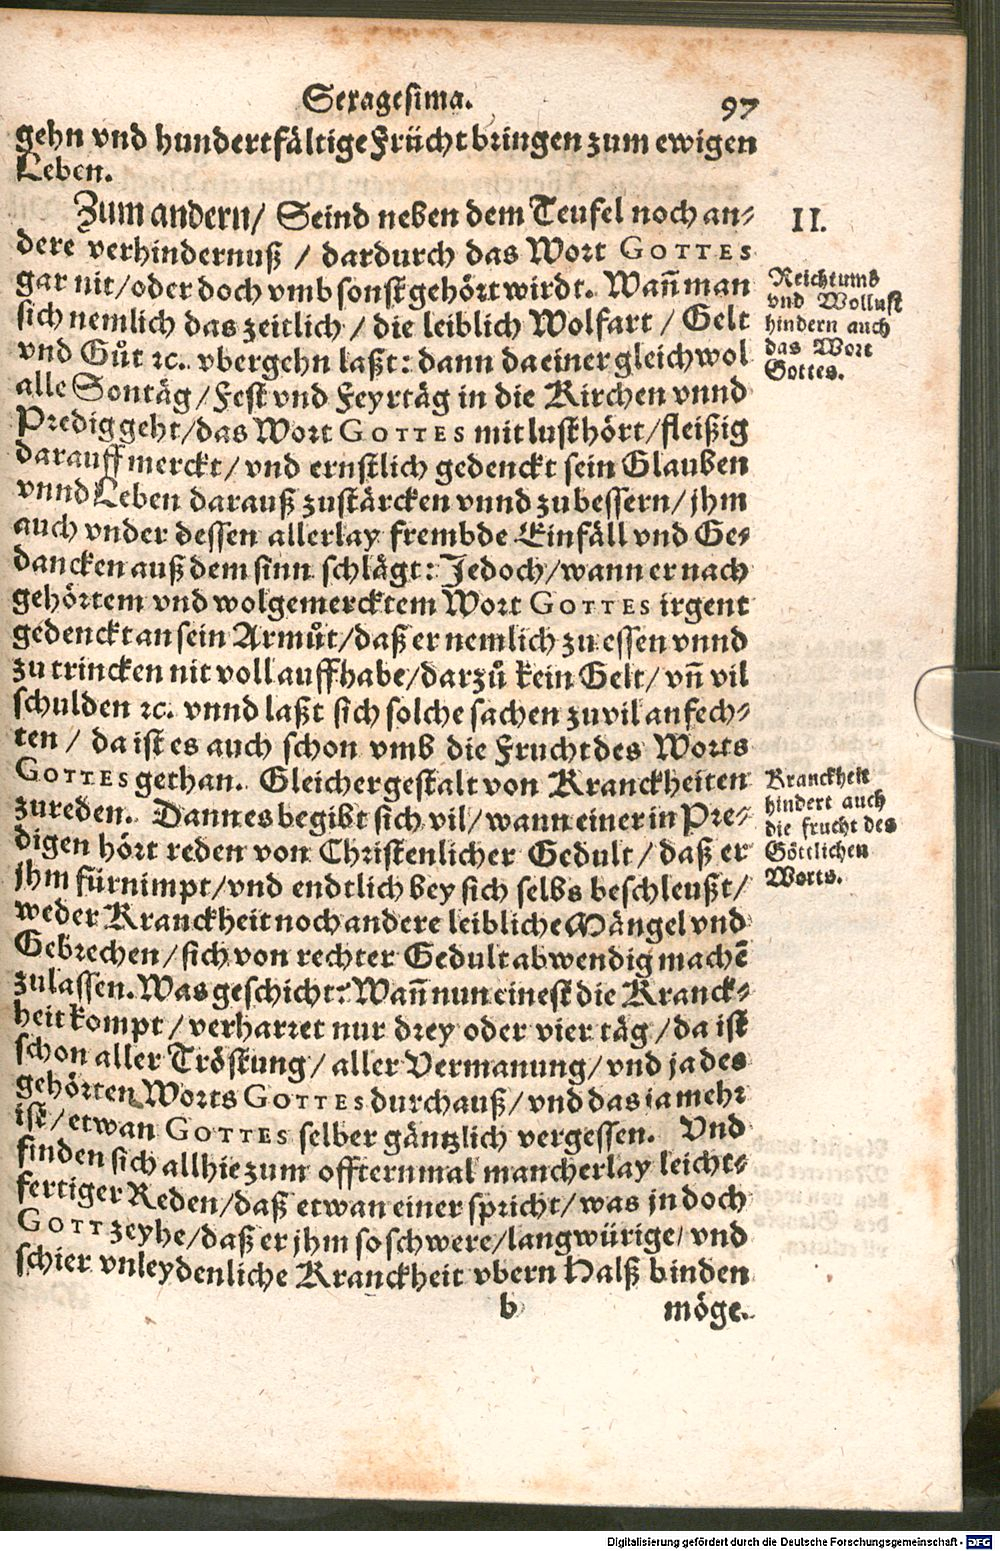 Sexagesima. 97
gehn vnd hundertfältige Frücht bringen zum ewigen
Leben.
Zum andern/ Seind neben dem Teufel noch an⸗
dere verhindernuß / dardurch das Wort GOTTES
gar nit/oder doch vmb sonst gehört wirdt. Wañ man
sich nemlich das zeitlich / die leiblich Wolfart / Gelt
vnd Gůt ꝛc. vbergehn laßt: dann da einer gleichwol
alle Sontäg/Fest vnd Feyrtäg in die Kirchen vnnd
Predig geht/das Wort GOTTES mit lust hört/fleißig
darauff merckt/vnd ernstlich gedenckt sein Glauben
vnnd Leben darauß zustärcken vnnd zubessern/jhm
auch vnder dessen allerlay frembde Einfäll vnd Ge⸗
dancken auß dem sinn schlägt: Jedoch/wann er nach
gehörtem vnd wolgemercktem Wort GOTTES irgent
gedenckt an sein Armůt/daß er nemlich zu essen vnnd
zu trincken nit voll auff habe/darzů kein Gelt/vñ vil
schulden ꝛc. vnnd laßt sich solche sachen zuvil anfech⸗
ten / da ist es auch schon vmb die Frucht des Worts
GOTTES gethan. Gleicher gestalt von Kranckheiten
zureden. Dann es begibt sich vil/wann einer in Pre⸗
digen hört reden von Christenlicher Gedult/daß er
jhm fürnimpt/vnd endtlich bey sich selbs beschleußt/
weder Kranckheit noch andere leibliche Mängel vnd
Gebrechen/sich von rechter Gedult abwendig machē
zulassen. Was geschicht? Wañ nun einest die Kranck⸗
heit kompt/verharret nur drey oder vier täg/da ist
schon aller Tröstung/aller Vermanung/vnd ja des
gehörten Worts GOTTES durchauß/vnd das ia mehr
ist/etwan GOTTES selber gäntzlich vergessen. Vnd
finden sich allhie zum offternmal mancherlay leicht⸗
fertiger Reden/daß etwan einer spricht/was jn doch
GOTT zeyhe/daß er jhm so schwere/langwürige/vnd
schier vnleydenliche Kranckheit vbern Halß binden
b möge.
II.
Reichtums
vnd Wollust
hindern auch
das Wort
Gottes.
Kranckheit
hindert auch
die frucht des
Göttlichen
Worts.
Digitalisierung gefördert durch die Deutsche Forschungsgemeinschaft - DFG